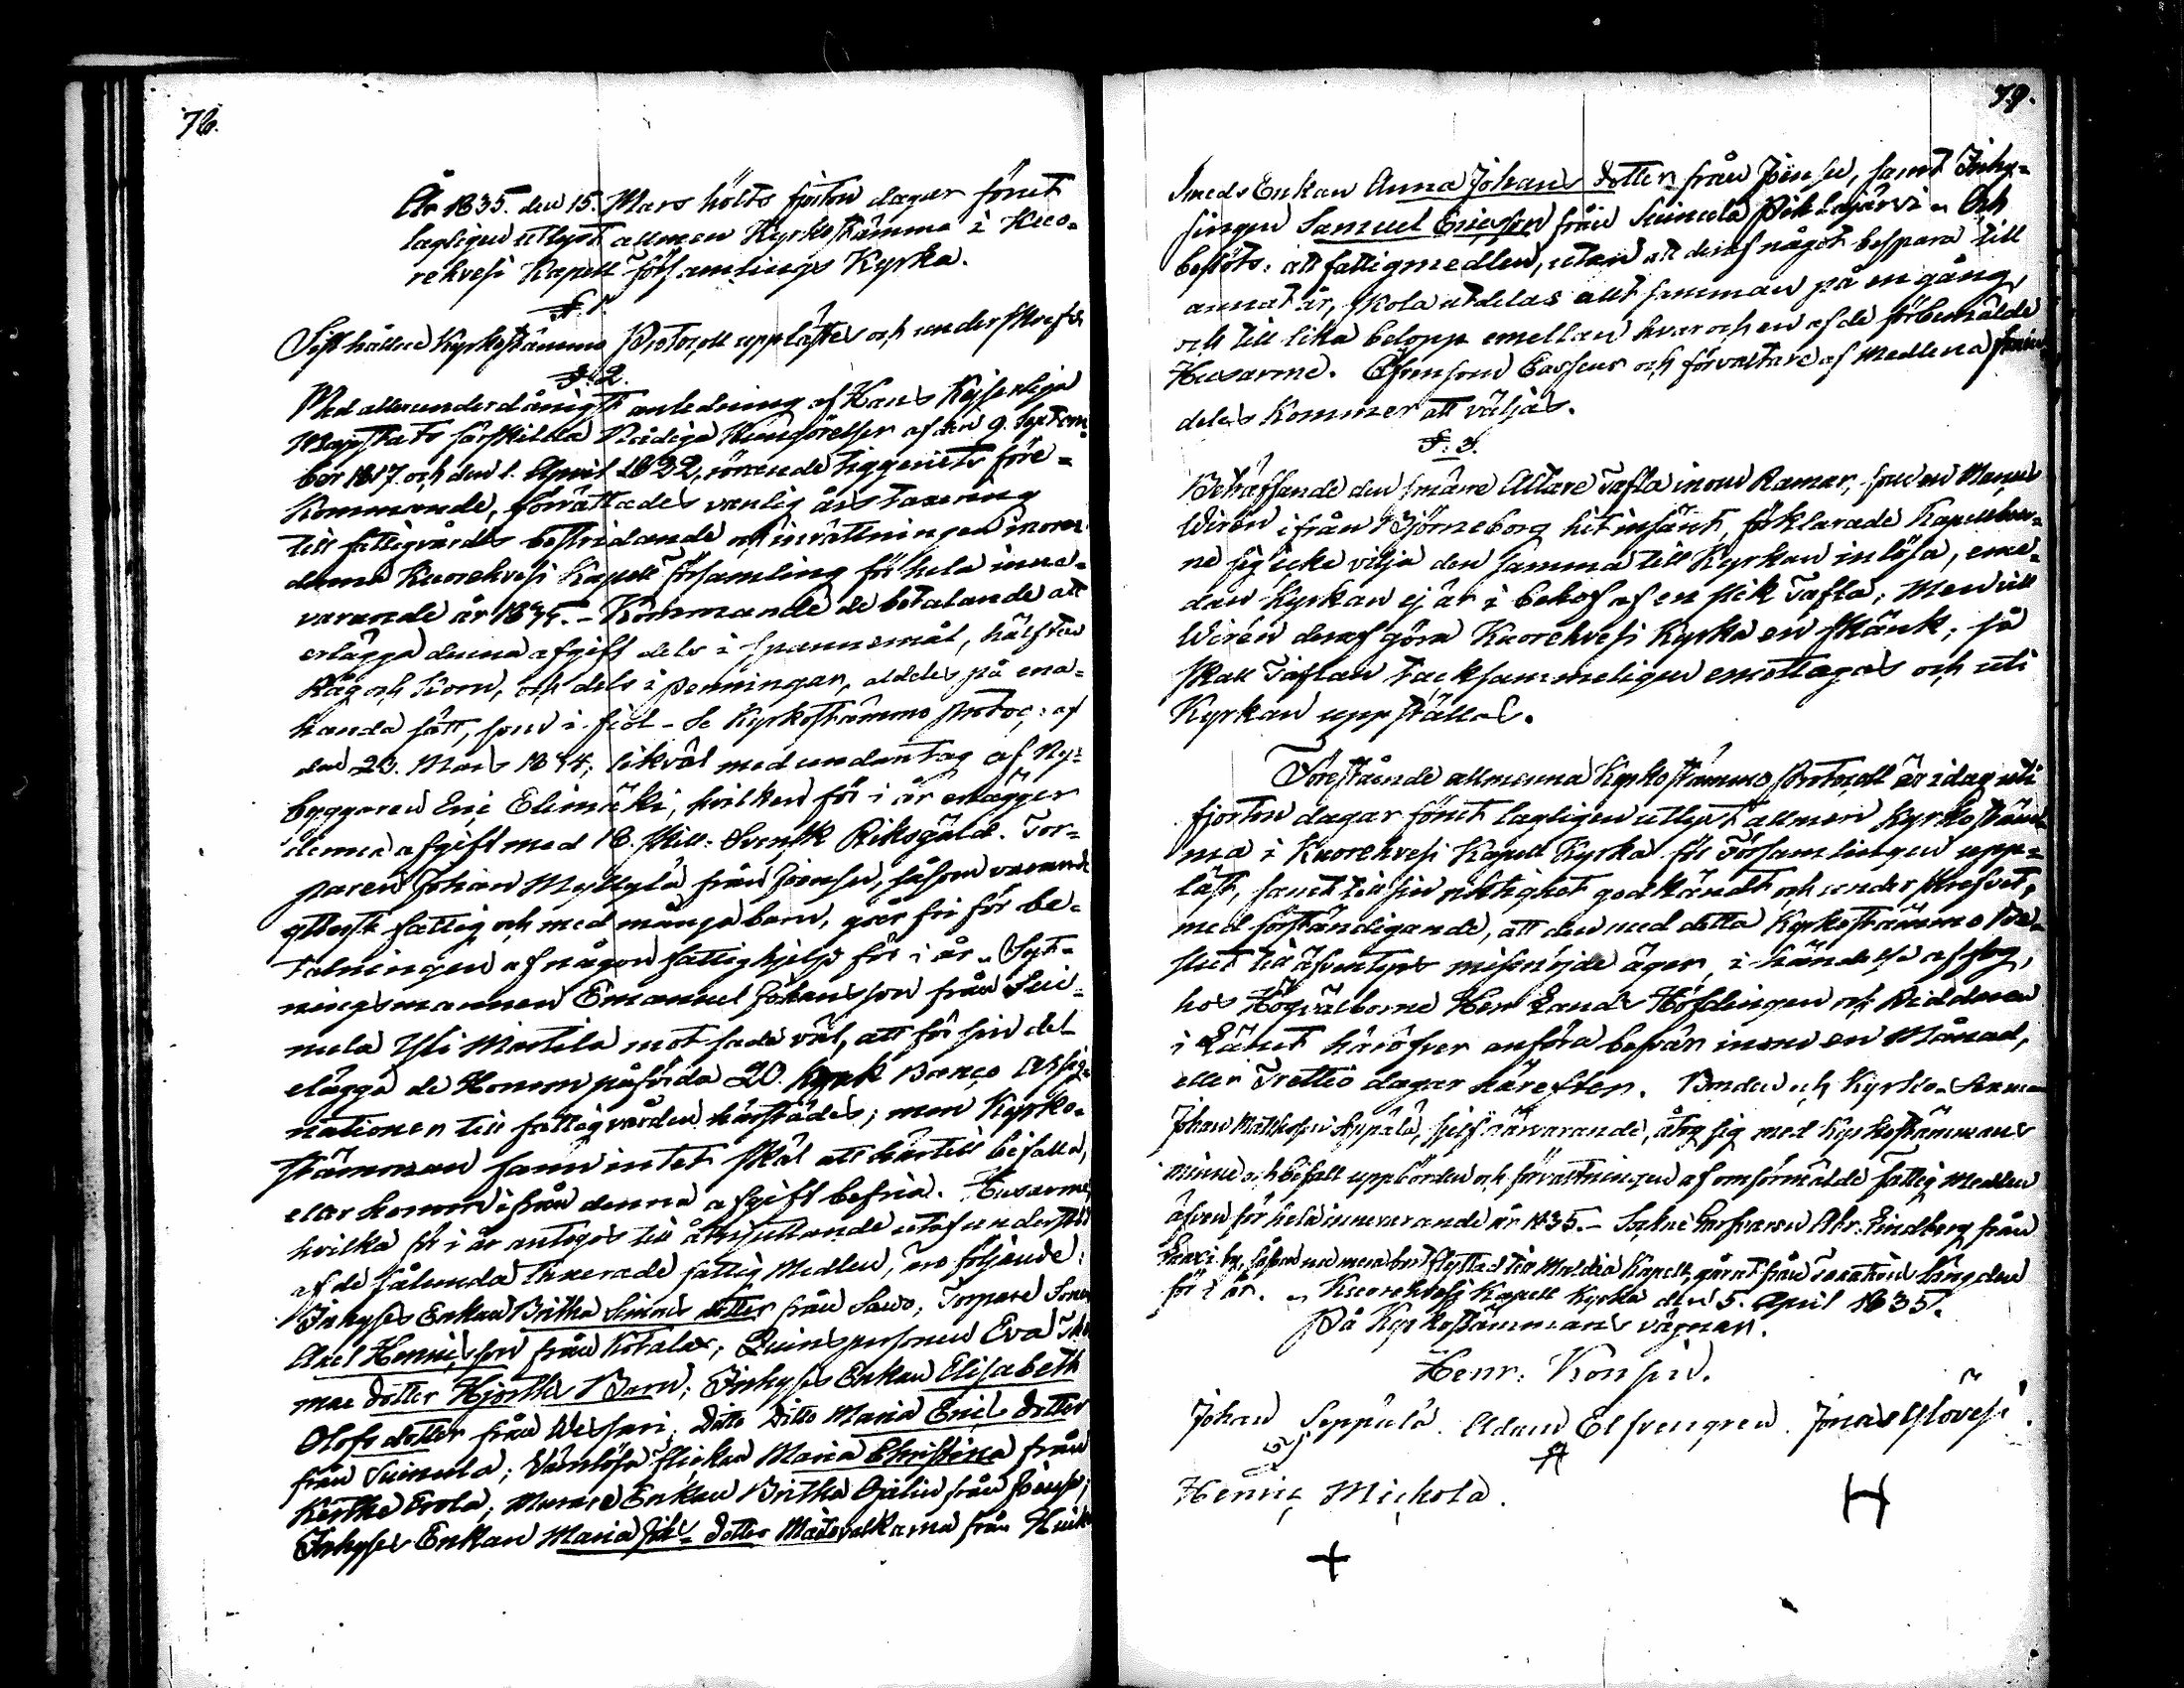 76.
År 1835. den 15. Mars hölts fjorton dagar förut
lagligen utlyst allmen Kyrkostämma i Kuo-
rehvesi Kapell Församlings Kyrka.
§ 1.
Sist hållne Kyrkostämmo Protocoll upplästes och underskrefs
§ 2.
Med allerunderdånigst anledning af Hans Kejserliga
Majestets särskillda Nådiga Kungörelser af den 9. Septem-
ber 1817. och den 1. April 1822, rörande tiggeriets före-
kommande, förrättades vanlig års taxering
till fattigvårds bestridande och inrättningen inom
denna Kuorehvesi Kapell Församling för hela inne-
varande år 1835. - Kommande de betalande att
erlägga denna afgift dels i spannemål, hälften
Råg och Korn, och dels i penningar, aldeles på ena-
handa sätt, som i fiol - Se Kyrkostämmo protoc: af
den 23. Mars 1834; likväl med undantag af Ny-
byggaren Eric Elimäki, hvilken för i år erlägger
denna afgift med 16. skill: Svensk Riksgäld. Tor-
paren Johan Myllylä från Joensu, såsom varande
ytterst fattig och med många barn, går fri för be-
talningen af någon fattighjelp för i år. Syt-
ningsmannen Emanuel Johansson från Sui-
nula Yli Martila motsade väl, att för sin del
elägga de Honom påförda 20. kopek Banco Assig-
nationer till fattigvården härstädes; men Kyrko-
stämman fann intet skäl att härtill bifalla,
eller honom ifrån denna afgift befria. Husarme,
hvilka för i år antogos till åtnjuttande utaf understöd
af de sålunda taxerade fattig Medlen, äro följande:
Inhyses Enkan Britha Simons dotter från Sawo; Torpare Sonen
Axel Henricsson från Kotala; Quinspersonen Eva
mas dotter Hjorths Barn; Inhyses Enkan Elisabeth
Olofs dotter från Wessari; Ditto Ditto Maria Erics dotter
från Suinula; Vanlösa flickan Maria Christina från
Kerthe Erola; Murare Enkan Britha Ojelin från Joensu;
Inhyses Enkan Maria Joh:s dotter från
79.
Smeds Enkan Anna Johans dotter från Joensu, samt Inhy-
singen Samuel Ericsson från Suinula Pihlajärvi. Och
beslöts: att fattigmedlen, utan att deraf något bespara till
annat år, skola utdelas allt samman på en gång,
och till lika belopp emellan hvar och en af de förbemälde
Husarme. Äfvensom Casseur och förvaltare af Medlena
deles Kommer att väljas.
§: 3.
Beträffande den smärre Altare Tafla inom Ramar, som en
Wirén ifrån Björneborg hit insänt, förklarade Kapellboer-
ne sig icke vilja den samma till Kyrkan inlösa, eme-
dan Kyrkan ej är i behof af en slik Tafla; Men vill
Wirén deraf göra Kuorehvesi Kyrka en skänk, så
skall Taflan tacksammeligen emottagas och uti
Kyrkan uppställas.
Förestående allmenna Kyrkostämmo Protocoll är i dag uti
fjorton dagar förut lagligen utlyst allmen Kyrkostäm-
ma i Kuorehvesi Kapell Kyrka för Församlingen upp-
läst, samt till sin riktighet godkändt och underskrefvet,
med förständigande, att den med detta Kyrkostämmo be-
slut till äfventyrs missnöjde äger, i händelse af fog,
hos Högvälborne Herr Lands Höfdingen och Riddaren
i Länet häröfver anföra besvär inom en Månad,
eller Trettio dagar härefter. Bonden och Kyrko-
Johan Matthsson Seppälä, sjelf närvarande, åtog sig med Kyrkostämmans
minne och bifall uppbörden och förvaltningen af omförmälde Fattig Medlen
äfven för hela innevarande år 1835. - Sockne Garfvaren Abr: Lindberg från
by, såsom nu mera bort flyttad till Kapell, går ut från Taxations längden
för i år. Kuorehvesi Kapell Kyrka den 5. April 1835.
På Kyrkostämmans vägnar.
Henr: Konsin.
Johan Seppälä. Adam Elfvengren. Jonas Ylövesi.
Henric Mickola.